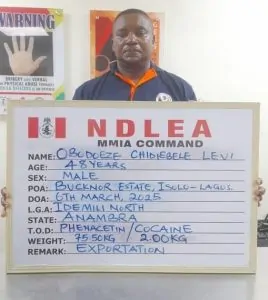 WARNING
NDLEA
MMIA COMMAND
NAME: OBODOEZE CHIDIEBELE LEVI
AGE: 48 YEARS
SEX: MALE
POA: BUCKNOR ESTATE, ISOLO-LAGOS.
DOA: 6TH MARCH, 2025
L.G.A: IDEMILI NORTH
STATE: ANAMBRA
T.O.D: PHENACETIN/COCAINE
WEIGHT: 75.50KG / 2.00KG
REMARK: EXPORTATION